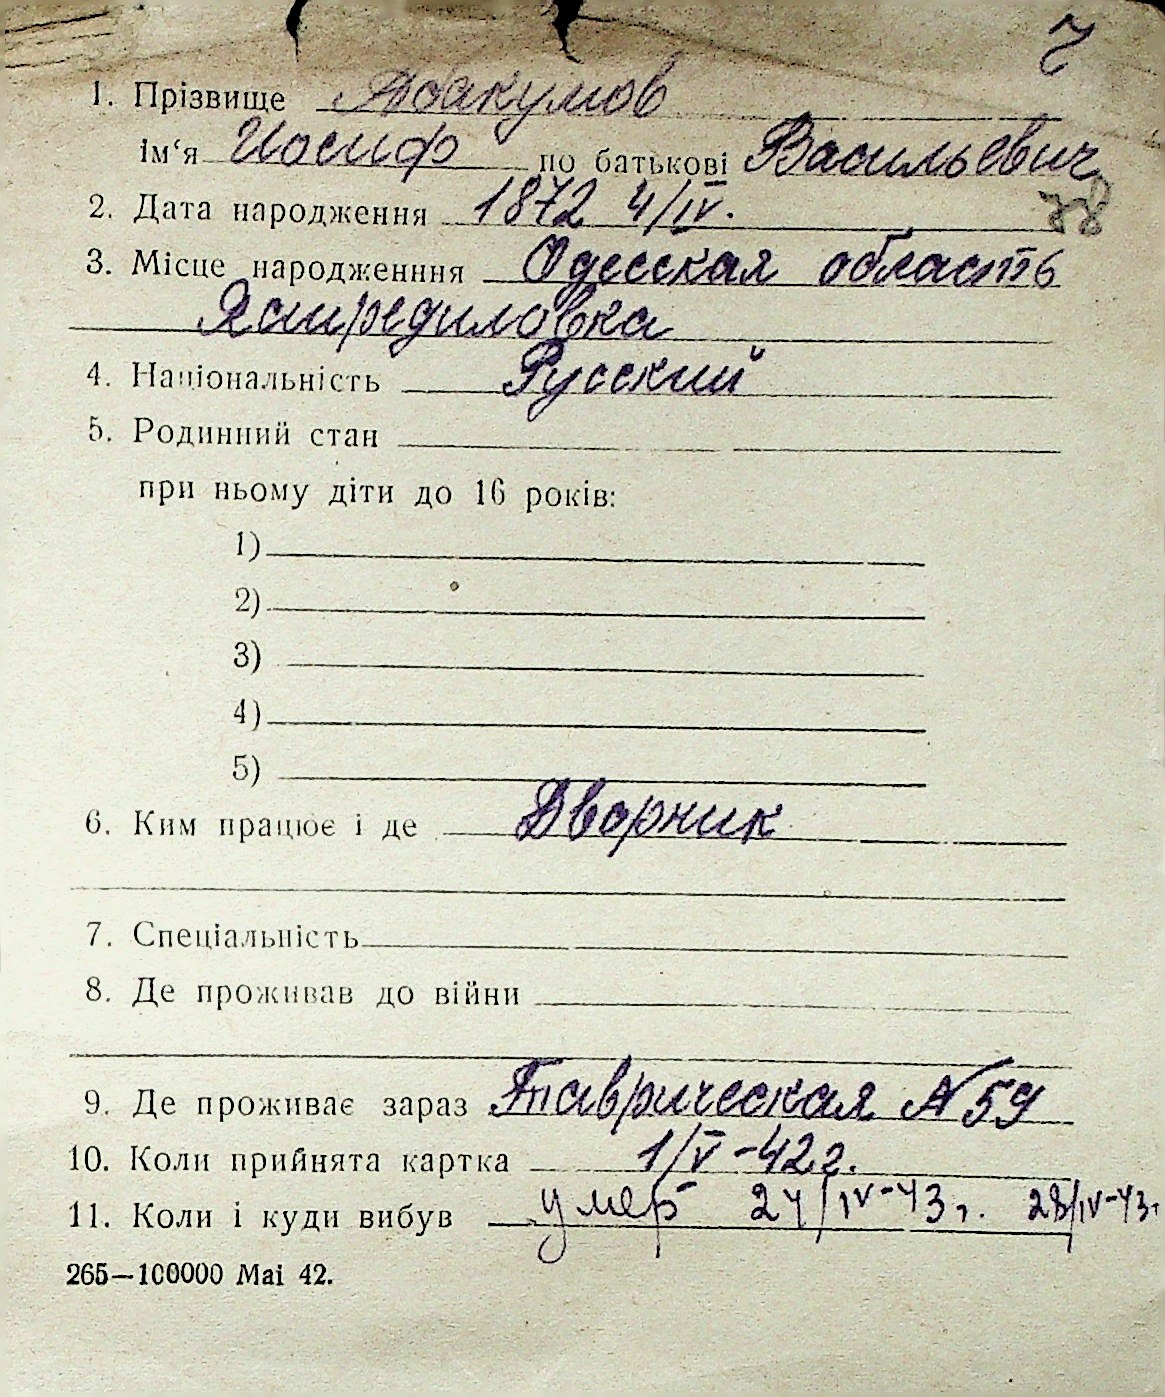 1. Прізвище Абакумов
ім‘я Иосиф по батькові Васильевич
2. Дата народження 1872 4/IV.
3. Місце народженння Одесская область
4. Національність Русский
5. Родинний стан
при ньому діти до 16 років:
1)
2)
3)
4)
5)
6. Ким працює і де Дворник
7. Спеціальність
8. Де проживав до війни
9. Де проживає зараз Таврическая № 59
10. Коли прийнята картка 1/V-42 г.
11. Коли і куди вибув умер 24/IV-43 г. 28/IV-43г
265—100000 Mai 42.